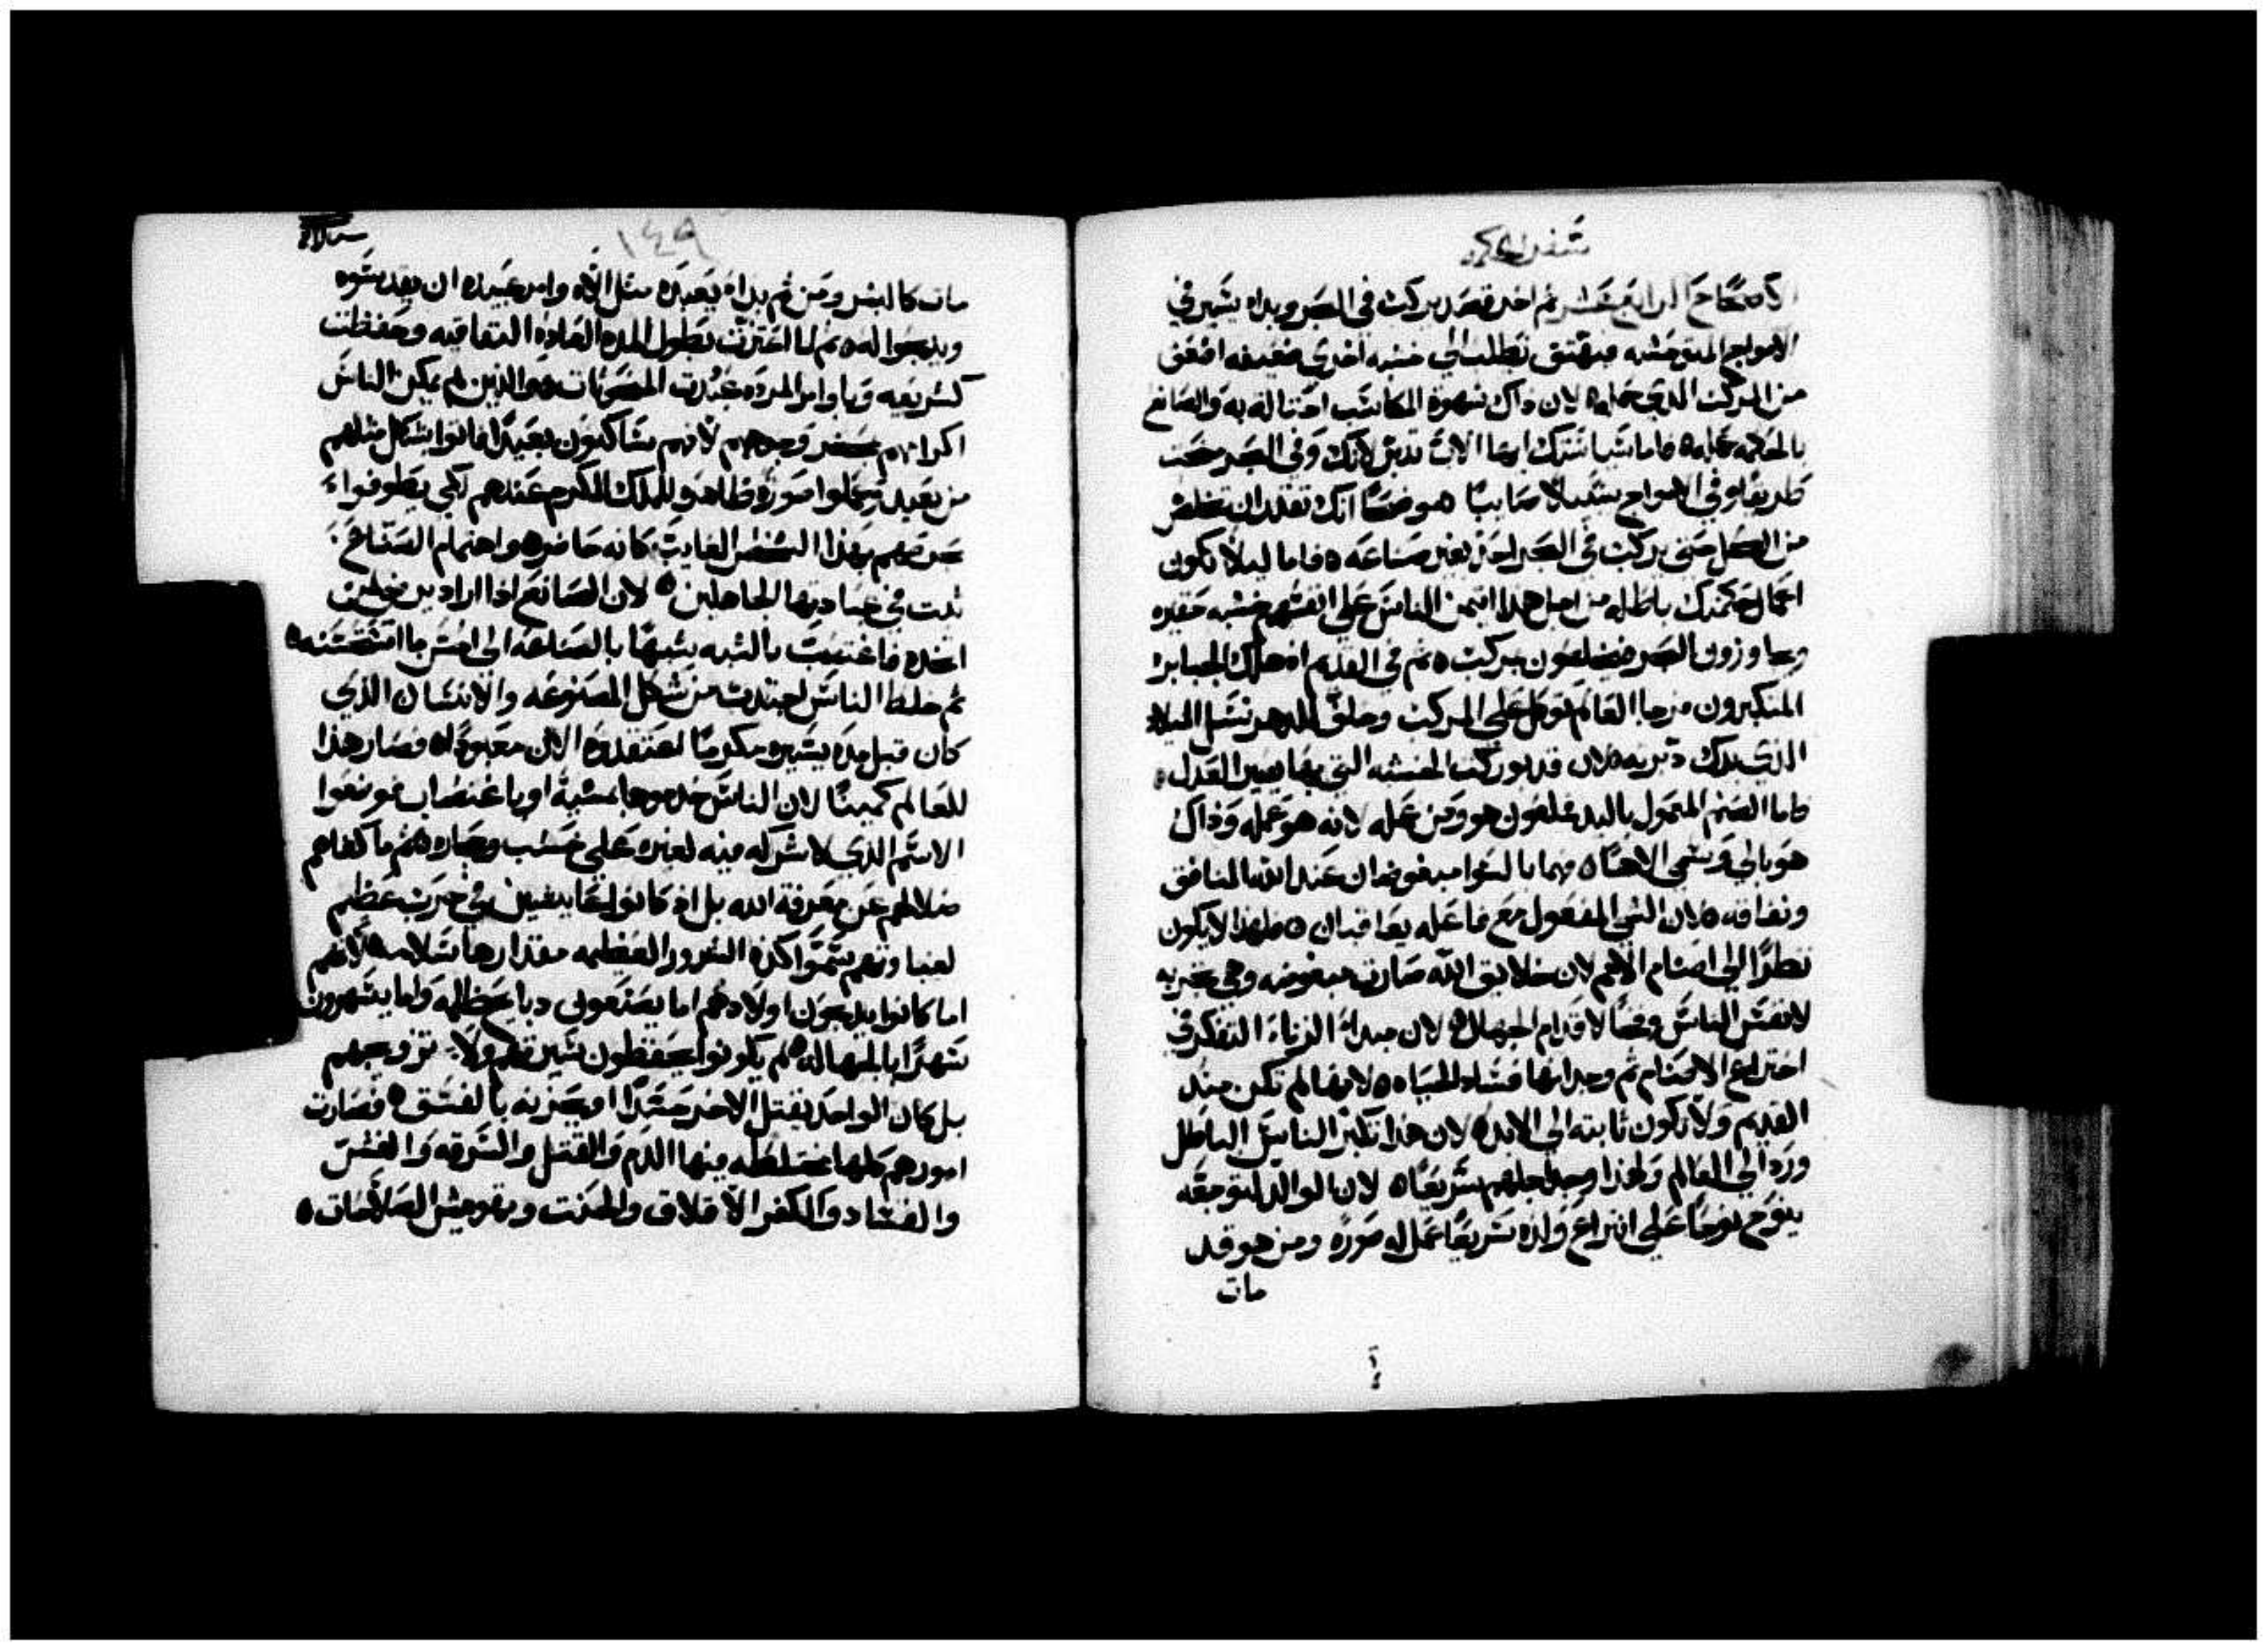 سفر الحكمه
الاصحاح الرابع عشر ثم اخر قصد يركب في البحر وبداء يسير في
الامواج المتوحشه فيهتف تطلب الي خشبه اخري ضعيفه اضعف
من المركب الذي حمله ٥ لان ذاك شهوة المكاسب احتالة به والصانع
بالحكمه عمله ٥ فاما سياستك ايها الاب تدبر لانك وفي البحر منحت
طريقا وفي الامواج سبيلا صايبا موضحا انك تقدر ان تخلص
من الكل حتي يركب في البحر احد بغير صناعه ٥ فاما ليلا تكون
اعمال حكمتك باطله من اجل هذا ايتمن الناس علي انفسهم خشبه حقيره
وجاوزون البحر فيخلصون بمركب ٥ ثم في القديم اذ هلك الجبابره
المتكبرون من جا العالم توكل علي المركب وخلف للدهر نسل الميلاد
الذي يدك دبرته ٥ لان قد بوركت الخشبه التي بها يصير العدل ٥
فاما الصنم المعمول باليد فملعون هو ومن عمله لانه هو عمله وذاك
هو بالي وسمي الاها ٥ فهما بالسوا مبغوضان عند الله المنافق
ونفاقه ٥ لان الشي المفعول مع فاعله يعاقبان ٥ فلهذا لا يكون
نظرا الي اصنام الامم لان خلايق الله صارت مبغوضه وهي تجربه
لانفس الناس وفخا لاقدام الجهال ٥ لان مبداء الزناء التفكر في
اختراع الاصنام ثم وجدانها فساد الحياه ٥ لانها لم تكن منذ
القديم ولا تكون ثابته الي الابد ٥ لان هذا تكبر الناس الباطل
ورد الي العالم ولهذا وجد اجلهم سريعا ٥ لان لوالد لتوجعه
ينوح نوحا علي انتزاع ولده سريعا عمل له صوره ومن هو قد
مات
١٤٩
مات كالبشر ومن ثم بداء يعبده مثل الاه وامر عبيده ان يقدسوه
ويذبحوا له ٥ ثم لما اعتزت بطول المده العاده النفاقيه وحفظت
كشريعه وباوامر المرده عبدت المصنوعات ٥ والذين لم يمكن الناس
اكرامهم بحضر وجههم لانهم ساكنون بعيدا فاتوا بشكل مثلهم
من بعيد وعملوا صورة ظاهره للملك المكرم عندهم لكي يطوفوا
بحرصهم بهذا الشخص الغايب كانه حاضر ٥ واهتمام الصناع
ثبت في عبادتها الجاهلين ٥ لان الصانع اذا اراد يرضي لمن
اتخده فاغتصب بالشبه يشبهها بالصناعه الي احسن ما استحسنه ٥
ثم خلط الناس اجتذبت من شكل المصنوعه والانسان الذي
كان قبل مده يسيره مكرما اعتقدوه الان معبودا ٥ وصار هذا
للعالم كمينا لان الناس خدموها بمشية او باغتصاب فوضعوا
الاسم الذي لا شركه فيه لغيره علي خشب وحجاره ٥ ثم ما كفاهم
ضلالهم عن معرفة الله بل اذ كانوا عايشين في حرب عظيم
لغباوتهم يسموا كثرة الشرور العظيمه مقدارها سلامه ٥ لانهم
اما كانوا يذبحون اولادهم اما يصنعون دبايح ظلمه واما يسهرون
سهرا بالجهاله ٥ لم يكونوا يحفظون سيرتهم ولا تزوجهم
بل كان الواحد يقتل الاخر حسدا او يحزنه بالفسق ٥ فصارت
امورهم كلها مختلطه فيها الدم والقتل والسرقه والغش
والفساد والكفر الاقلاق والحنث وتشويش الصالحات ٥